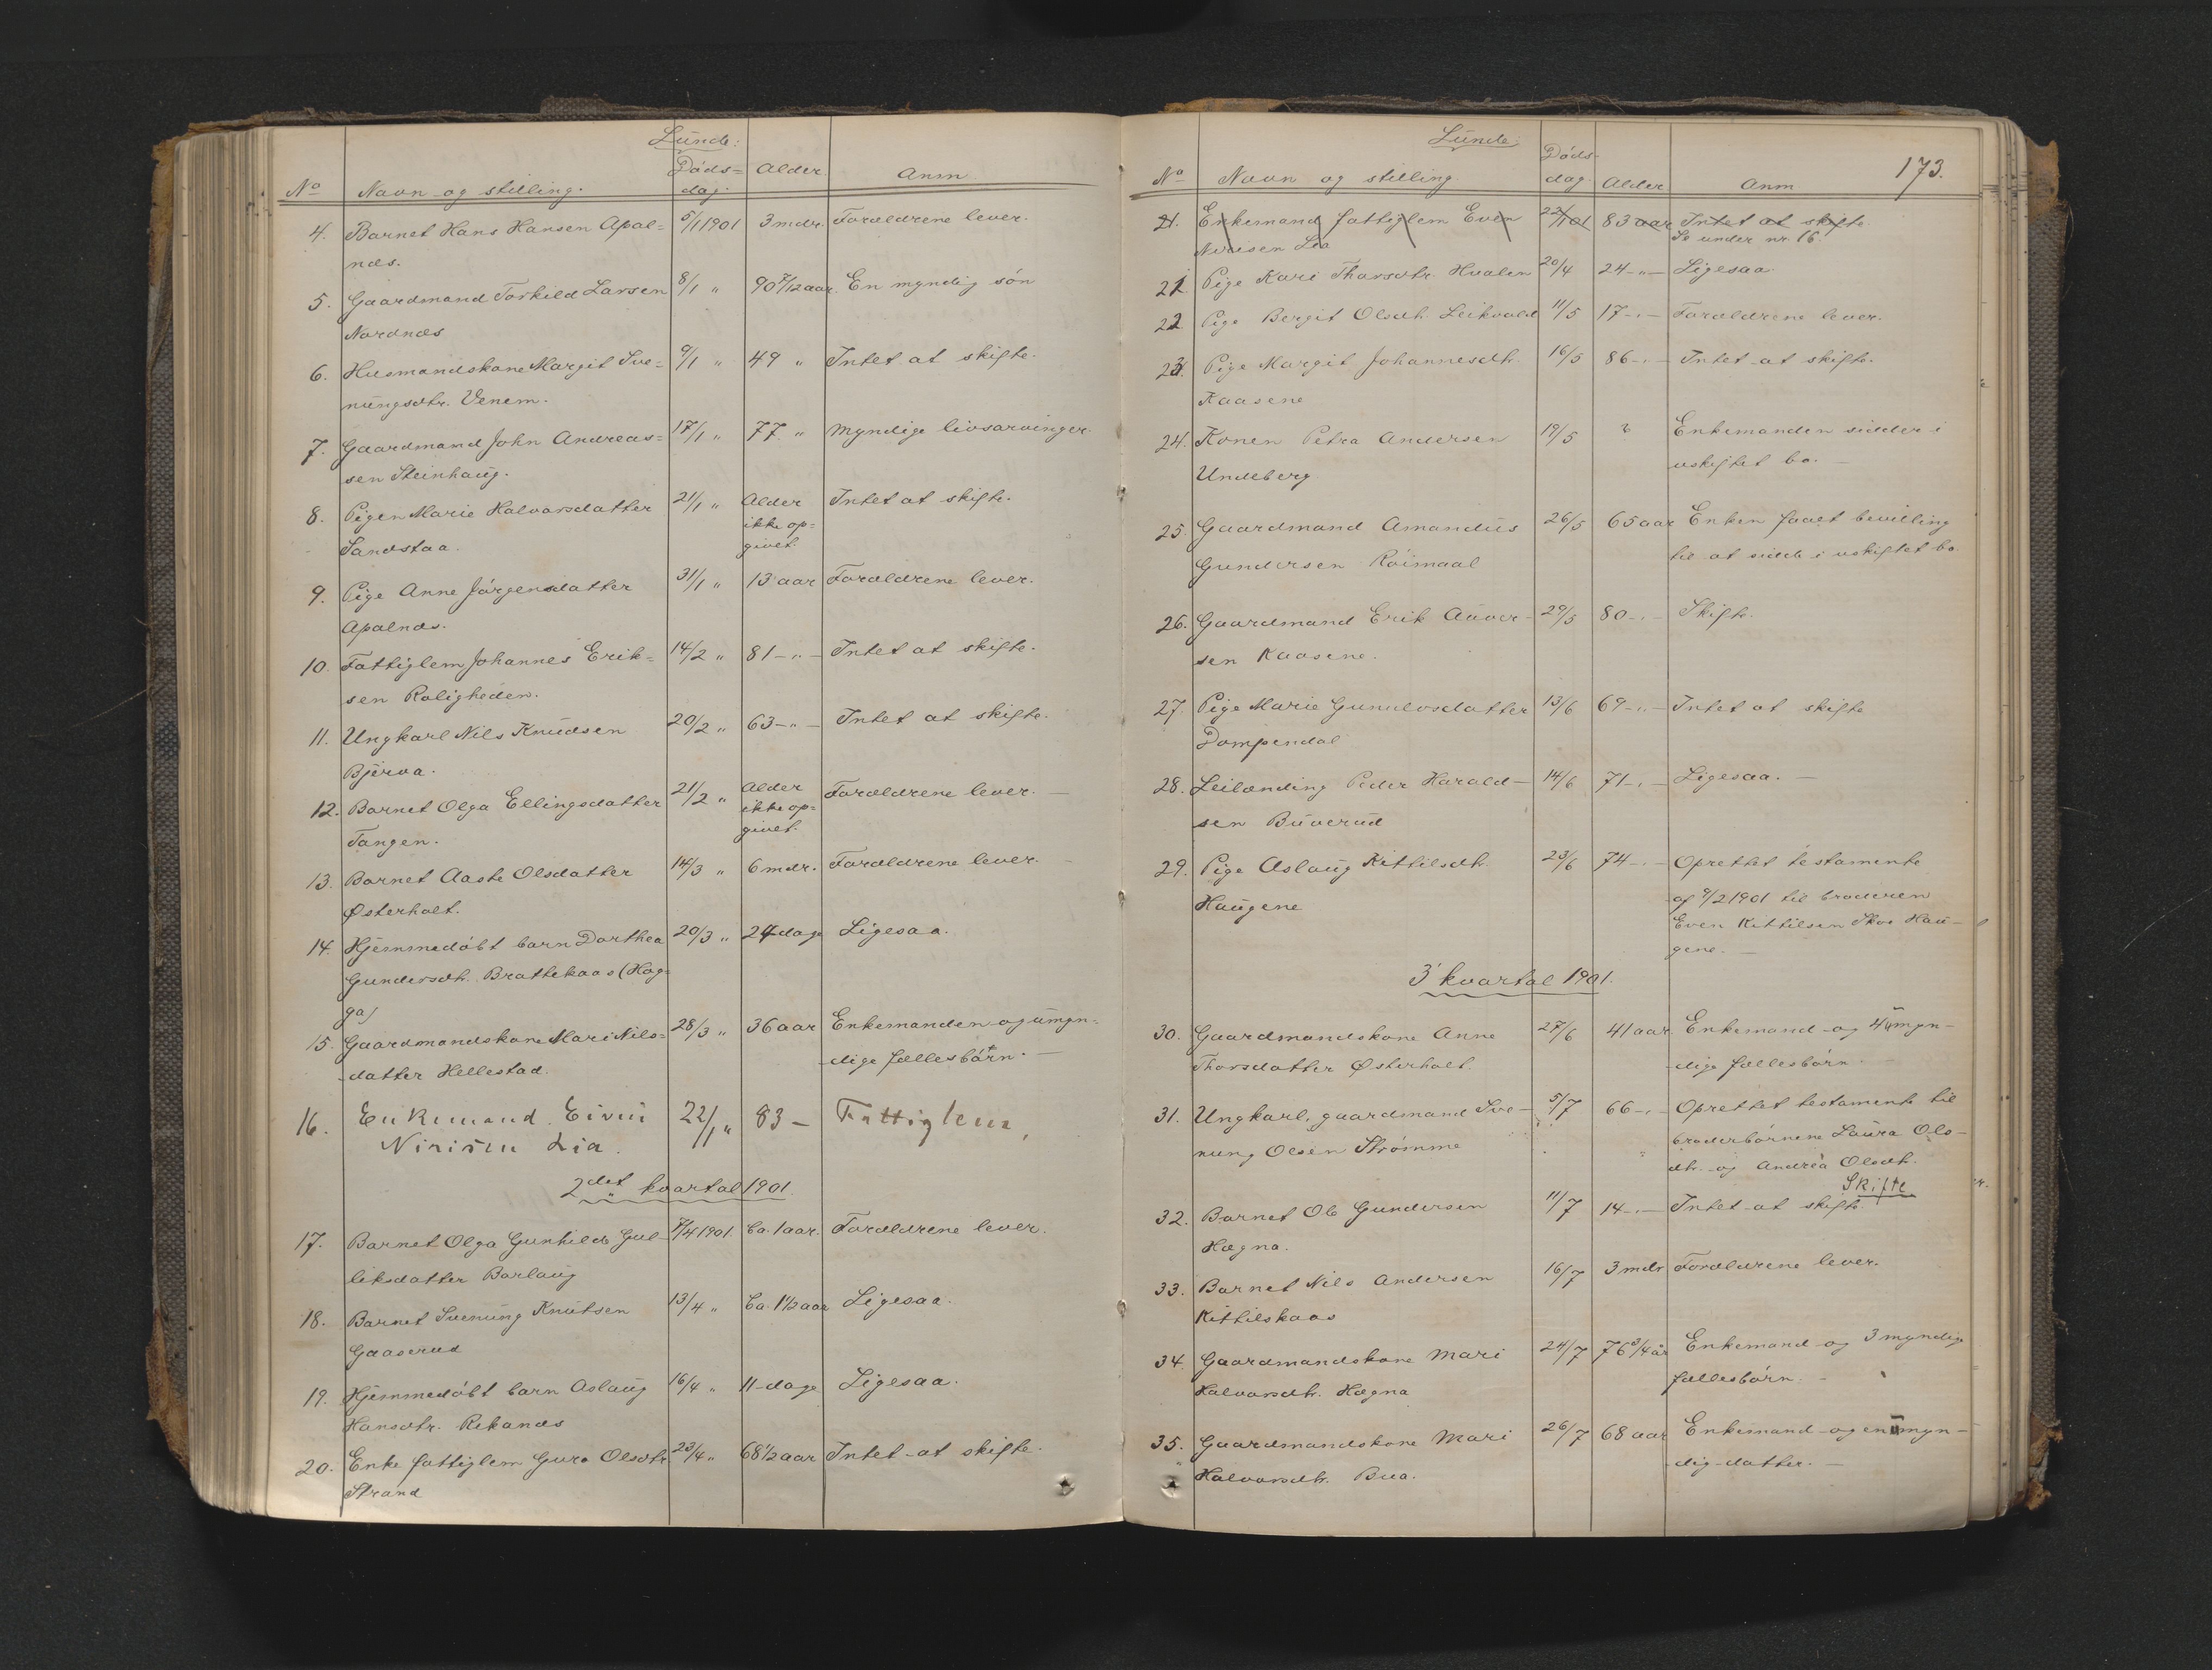 Lunde:
No Navn og stilling. Döds= dag. Alder. Anm.
4. Barnet Hans Hansen Apal= 5/1 1901 3 mdr. Forældrene lever.
næs.
5. Gaardmand Torkild Larsen 8/1 " 90 7/12 aar. En myndig sön
Nordnæs
6. Husmandskone Margit Sve= 9/1 " 49 " Intet at skifte.
nungsdtr. Venem.
7. Gaardmand John Andreas= 17/1 " 77 " Myndige livsarvinger.
sen Steinhaug.
8. Pigen Marie Halvorsdatter 21/1 " Alder Intet at skifte.
ikke op=
Sandstaa. givet.
9. Pige Anne Jörgensdatter 31/1 " 13 aar Forældrene lever.
Apalnæs.
10. Fattiglem Johannes Erik= 14/2 " 81 -"- Intet at skifte.
sen Roligheden.
11. Ungkarl Nils Knudsen 20/2 " 63 -"- Intet at skifte.
Bjerva.
12. Barnet Olga Ellingsdatter 21/2 " Alder Forældrene lever. —
ikke op=
Tangen. givet.
13. Barnet Aaste Olsdatter 14/3 " 6 mdr. Forældrene lever. —
Østerholt.
14. Hjemmedöbt barn Dorthea 20/3 " 24 dage Ligesaa.
Gundersdtr. Brattekaas (Hog=
ga)
15. Gaardmandskone Mari Nils= 28/3 " 36 aar Enkemanden og umyn=
datter Hellestad. dige fællesbörn. —
16. Enkemand Eivin 22/1 " 83 — Fattiglem,
Nirisen Lia.
2det kvartal 1901.
17. Barnet Olga Gunhilds Gul- 7/4 1901. Ca. 1 aar. Forældrene lever.
liksdatter Barlaug
18. Barnet Svenung Knutsen 13/4 " Ca. 1 1/2 aar Ligesaa.
Gaaserud
19. Hjemmedöbt barn Aslaug 16/4 " 11 dage Ligesaa.
Hansdtr. Rekanes
20. Enke fattiglem Guro Olsdtr 23/4 " 68 1/2 aar Intet at skifte.
Strand
Lunde:
173.
No Navn og stilling. Döds- dag. Alder Anm
21. Enkemand fattiglem Even 22/1 01 83 aar Intet at skifte.
Nirisen Lia Se under nr. 16.
21. Pige Kari Thorsdtr. Hvalen 20/4 24 -"- Ligesaa
22 Pige Bergit Olsdtr. Leikvold 11/5 17 -"- Forældrene lever.
23. Pige Margit Johannesdtr. 16/5 86 -"- Intet at skifte.
Kaasene
24. Konen Petra Andersen 19/5 ? Enkemanden sidder i
Undeberg uskiftet bo. —
25. Gaardmand Amandus 26/5 65 aar Enken faaet bevilling
Gundersen Röimaal til at sidde i uskiftet bo
26. Gaardmand Erik Auver- 29/5 80 -"- Skifte.
sen Kaasene.
27. Pige Marie Gunulvsdatter 13/6 69 -"- Intet at skifte
Dompendal
28. Leilænding Peder Harald- 14/6 71 -"- Ligesaa. —
sen Buverud
29. Pige Aslaug Kittilsdtr. 23/6 74 -"- Oprettet testamente
Haugene af 9/2 1901 til broderen
Even Kittilsen Hau-
gene. —
3' kvartal 1901.
30. Gaardmandskone Anne 27/6 41 aar. Enkemand og 4 umyn-
Thorsdatter Østerholt. dige fællesbörn. —
31. Ungkarl, gaardmand Sve- 5/7 66 -"- Oprettet testamente til
nung Olsen Strömme broderbörnene Laura Ols-
dtr. og Andrea Olsdtr.
Skifte
32. Barnet Ole Gundersen 11/7 14 -"- Intet at skifte.
Hægna.
33. Barnet Nils Andersen 16/7 3 mdr Forældrene lever.
Kittilskaas
34. Gaardmandskone Mari 24/7 76 3/4 år Enkemand og 3 myndige
Halvorsdtr. Hægna fællesbörn. —
35. Gaardmandskone Mari 26/7 68 aar Enkemand og en umyn-
Halvorsdtr. Bua. dig datter. —